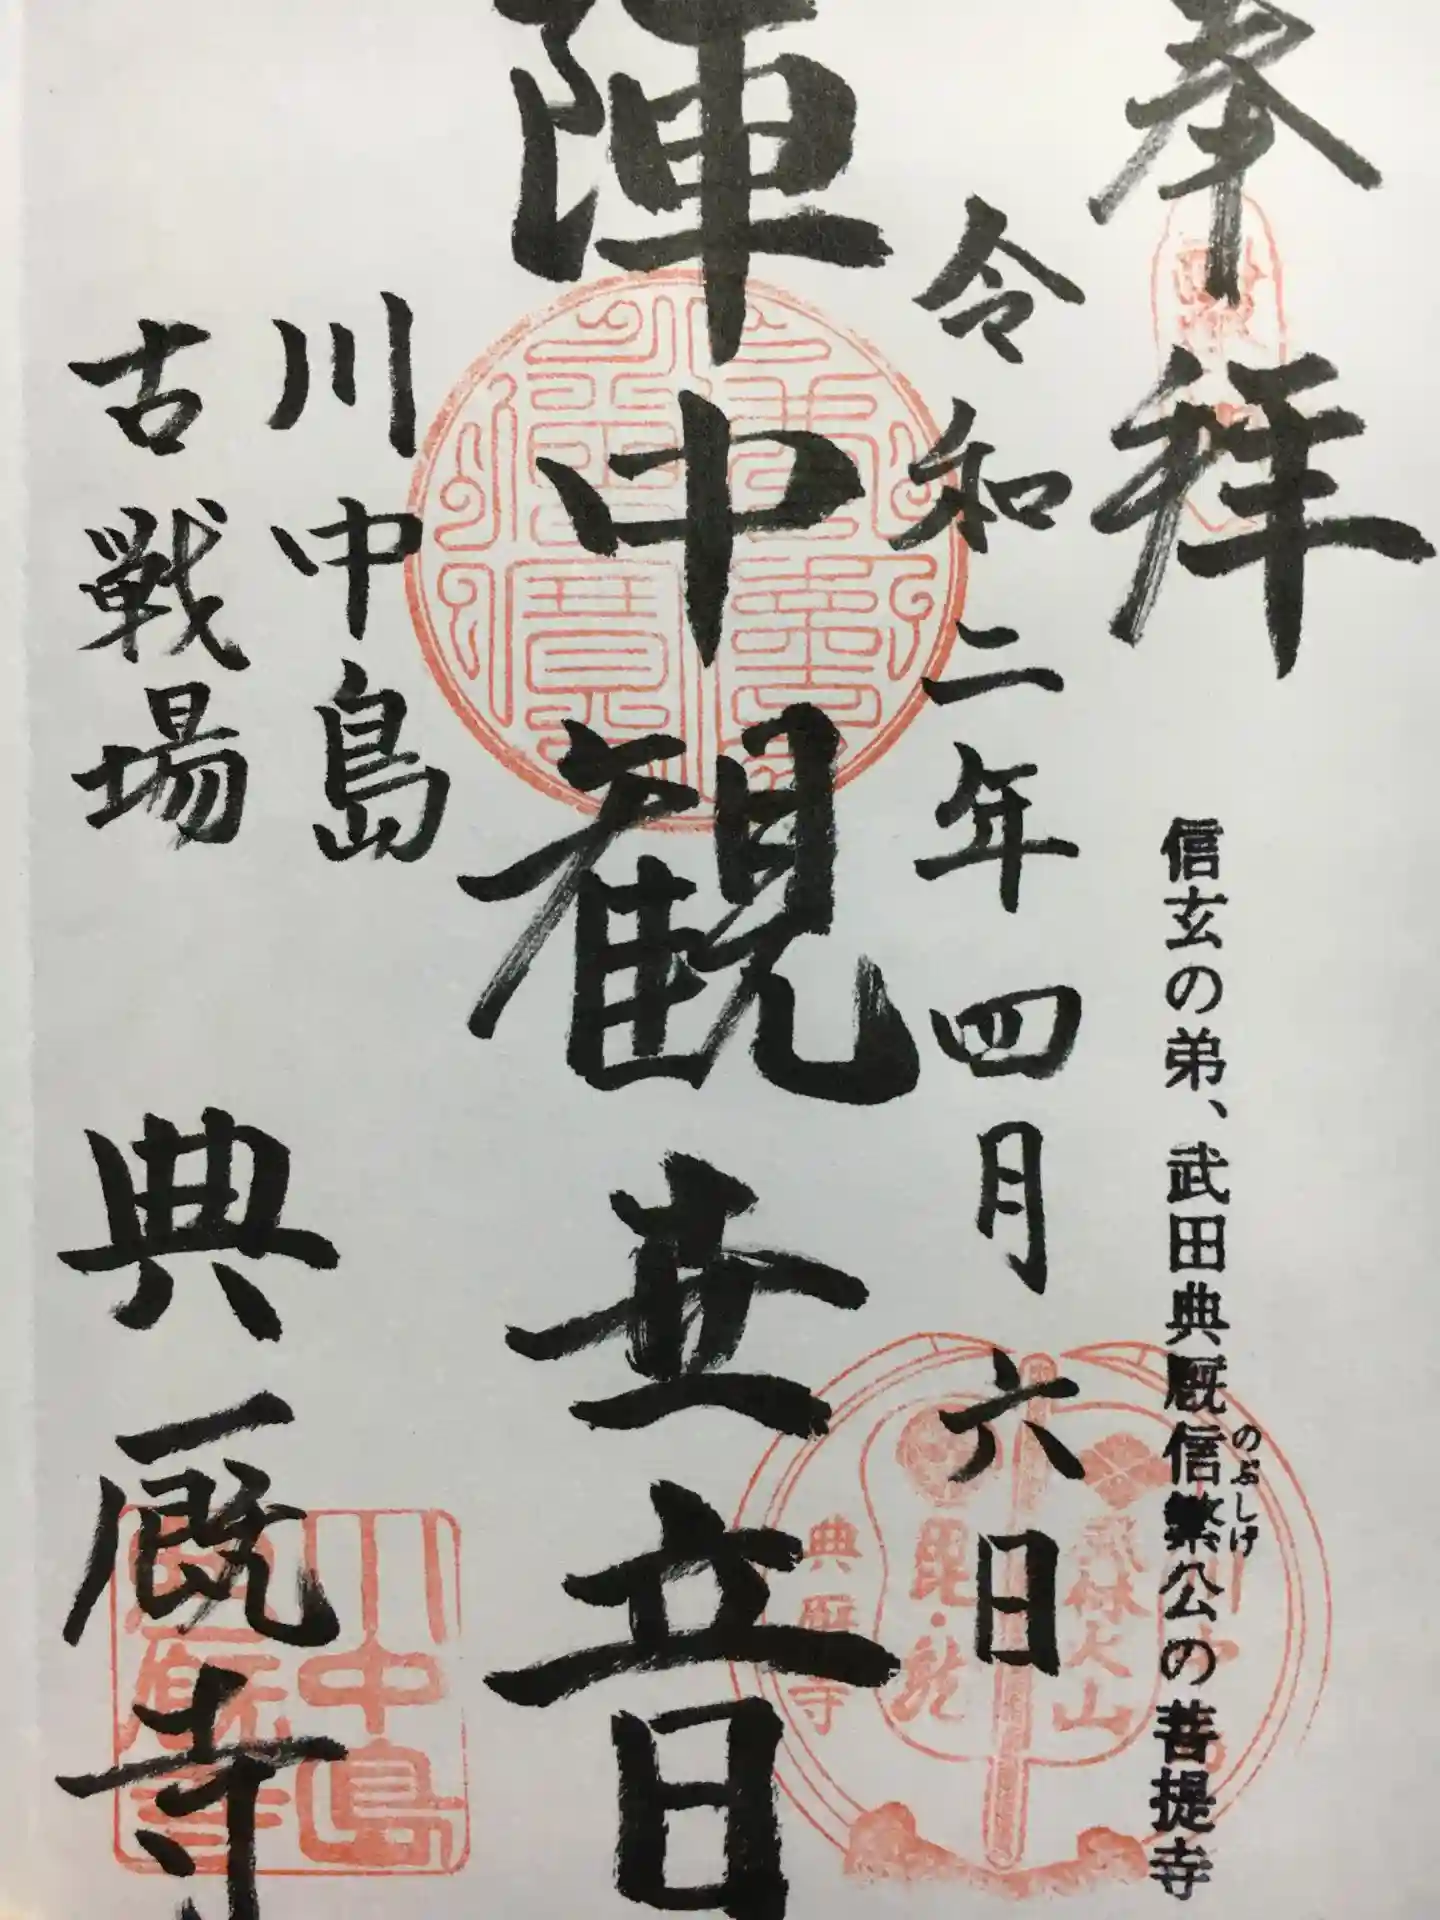 奉拝
信玄の弟、武田典厩信繁公の菩提寺
のぶしげ
令和二年四月六日
陣中観世音
川中島
古戦場
典厩寺
風林火山
毘・龍
典厩寺
川中島
典厩寺